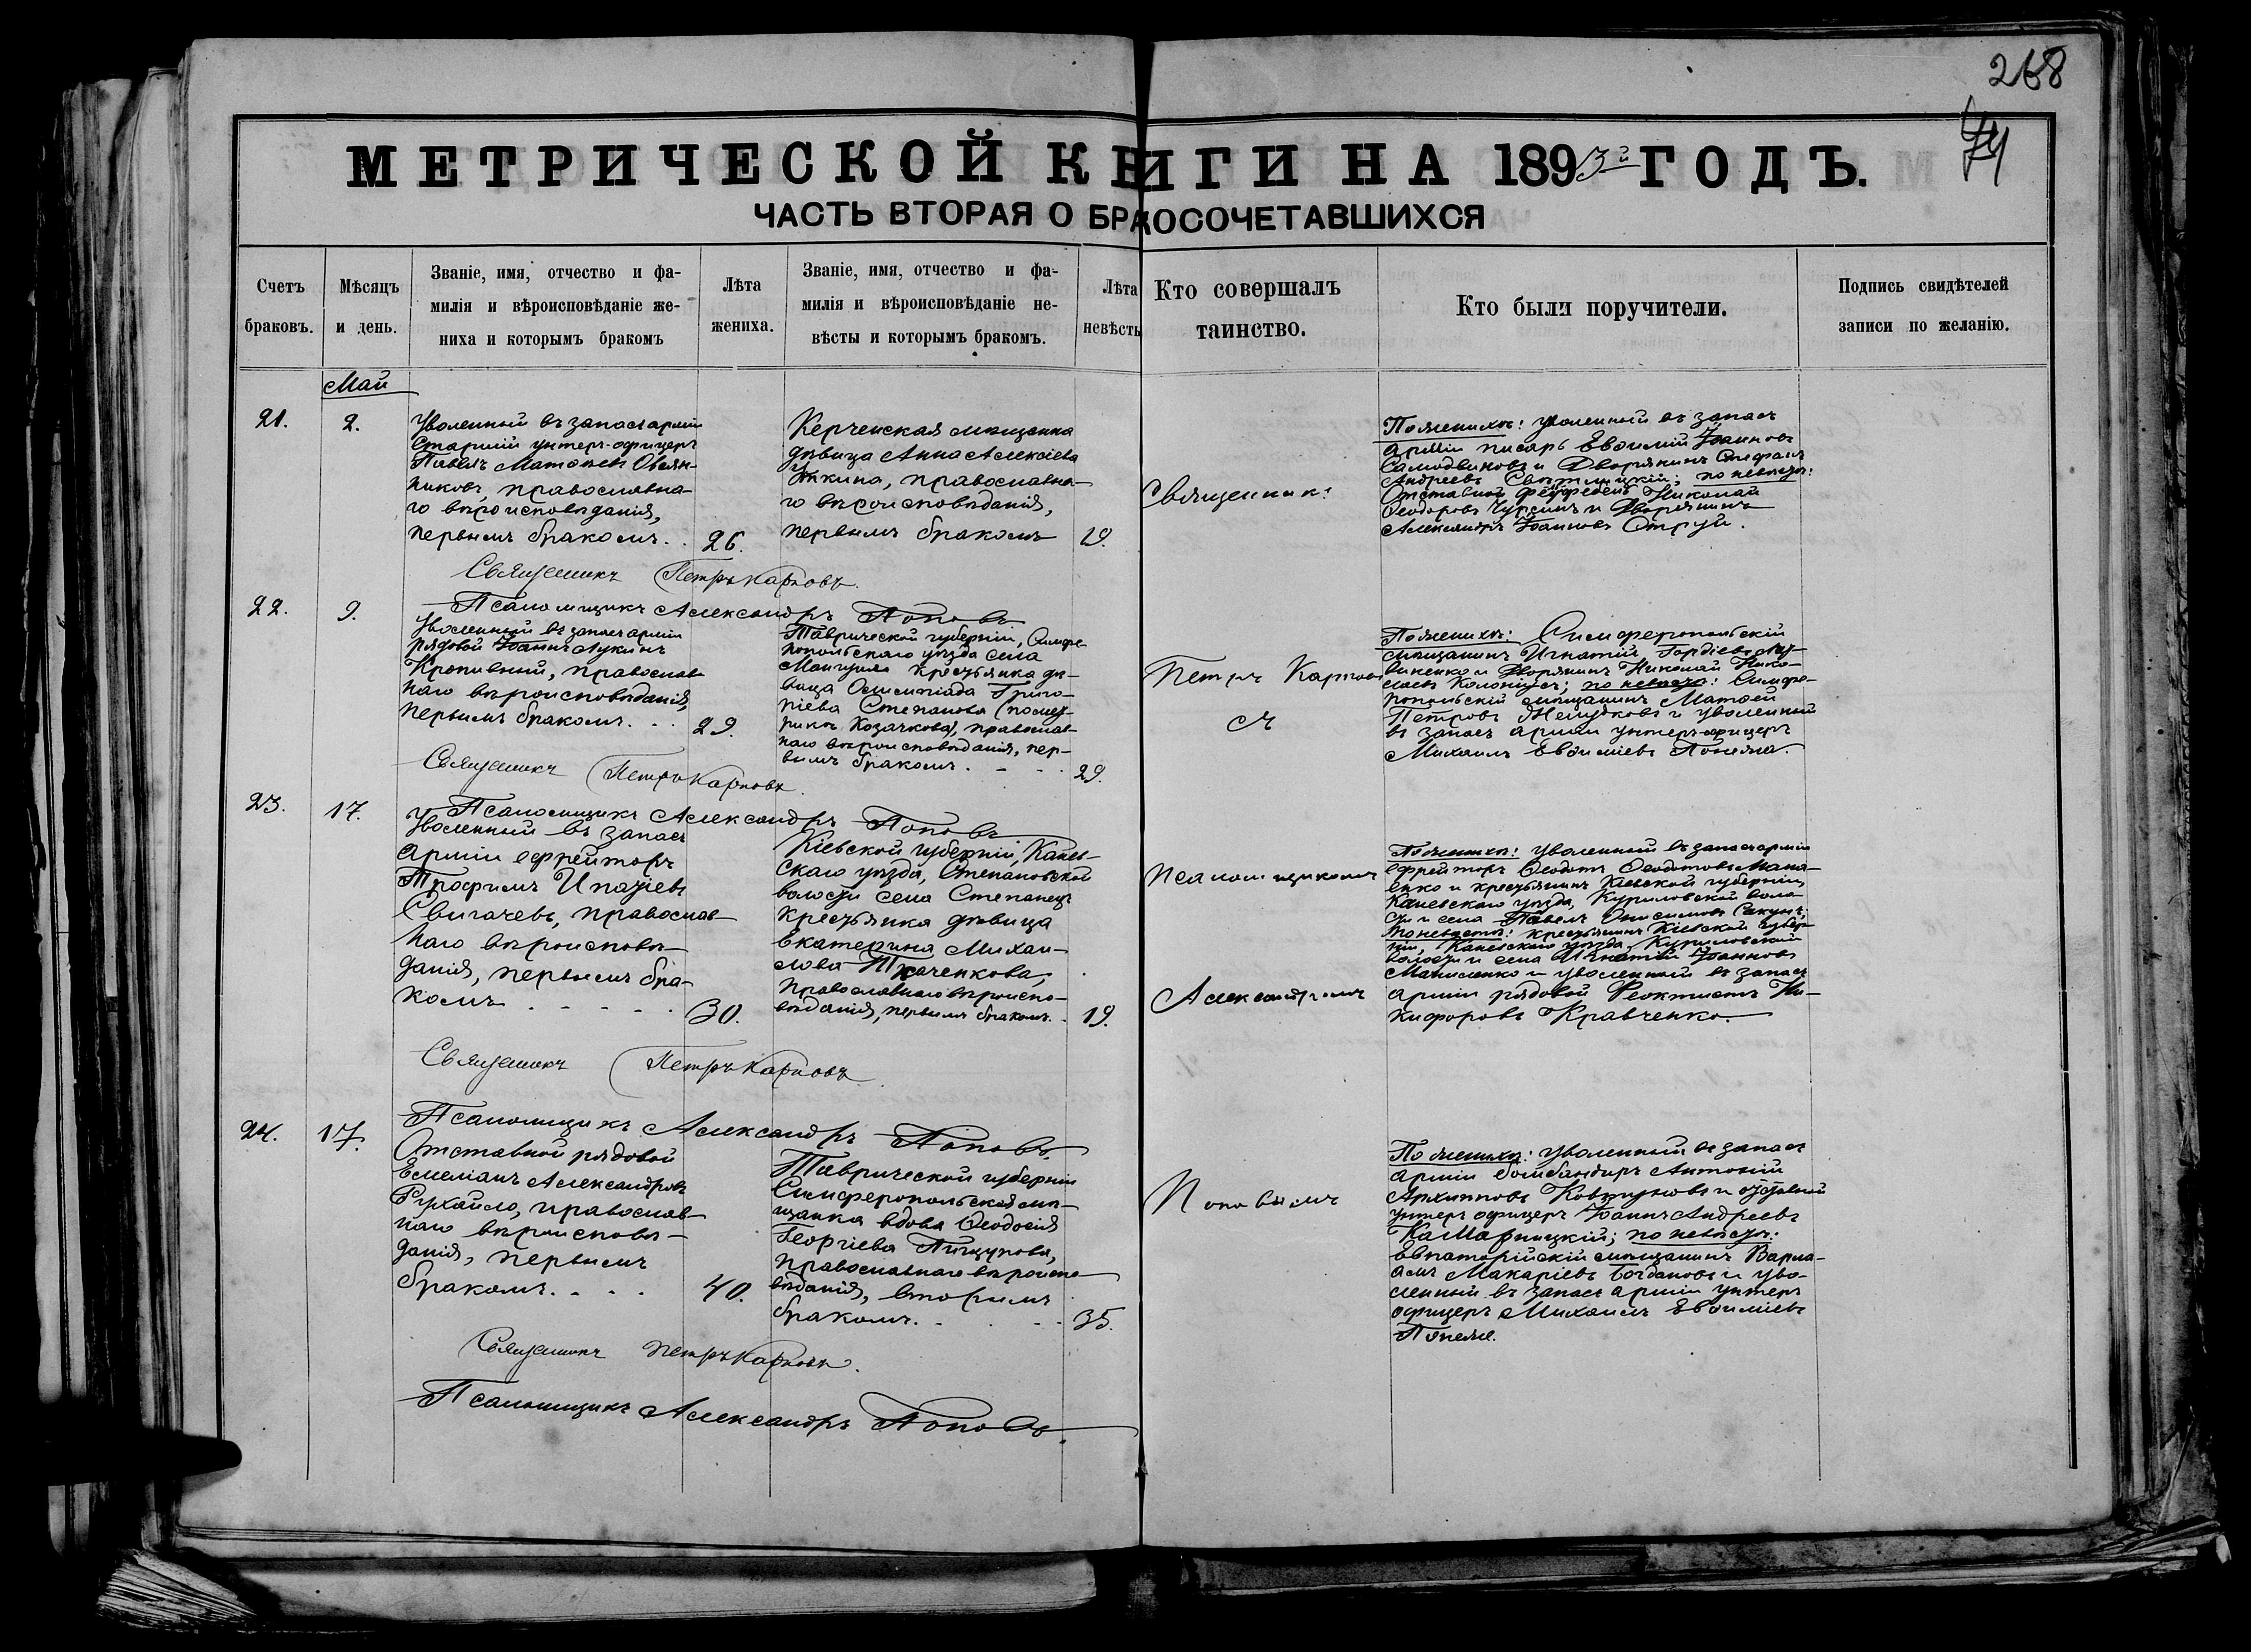 268
74
МЕТРИЧЕСКОЙ КНИГИ НА 1893й ГОДЪ.
ЧАСТЬ ВТОРАЯ О БРАКОСОЧЕТАВШИХСЯ
Счетъ
браковъ.
Мѣсяцъ
и день.
Званіе, имя, отчество и фа-
милія и вѣроисповѣданіе же-
ниха и которымъ бракомъ
Лѣта
жениха.
Званіе, имя, отчество и фа-
милія и вѣроисповѣданіе не-
вѣсты и которымъ бракомъ.
Лѣта
невѣсты
Кто совершалъ
таинство.
Кто были поручители.
Подпись свидѣтелей
записи по желанію.
Май
21.
2.
Уволенный въ запасъ арміи
Старшій унтеръ-офицеръ
Павелъ Матѳѣевъ Овсян-
никовъ, православна-
го вѣроисповѣданія,
первымъ бракомъ. .
26.
Керченская мѣщанка
дѣвица Анна Алексіева
православна-
го вѣроисповѣданія,
первымъ бракомъ
19.
Священникъ
По женихѣ: уволенный въ запасъ
арміи писарь Евѳимій Іоанновъ
Самодвиковъ и Дворянинъ Стефанъ
Андреевъ Свѣтлицкій; по невѣстѣ:
Отставной фейрверкъ Николай
Ѳеодоровъ Чурсинъ и Дворянинъ
Александръ Іоанновъ Струй.
Священникъ Петръ Карповъ.
Псаломщикъ Александръ Поповъ
22.
9.
Уволенный въ запасъ арміи
рядовой Іоаннъ Лукинъ
Кропивный, православ-
наго вѣроисповѣданія,
первымъ бракомъ. . .
29.
Таврической губерніи, Симфе-
ропольскаго уѣзда села
Мангушъ крестьянка дѣ-
вица Олимпіада Григо-
ріева Степанова (по мат-
Козачкова), православ-
наго вѣроисповѣданія, пер-
вымъ бракомъ. . . .
29.
Петръ Карповъ
съ
По женихѣ: Симферопольскій
мѣщанинъ Игнатій Гордіевъ Лит-
виненко и Дворянинъ Николай Нико-
лаевъ Колоніусъ; по невѣстѣ: Симфе-
ропольскій мѣщанинъ Матѳей
Петровъ Желудковъ и уволенный
въ запасъ арміи унтеръ-офицеръ
Михаилъ Евѳиміевъ
Священникъ Петръ Карповъ.
Псаломщикъ Александръ Поповъ
23.
17.
Уволенный въ запасъ
арміи ефрейторъ
Трофимъ Ипатіевъ
Свигачевъ, православ-
наго вѣроисповѣ-
данія, первымъ бра-
комъ . . . . .
30.
Кіевской губерніи, Канев-
скаго уѣзда, Степановской
волости села Степанецъ
крестьянка дѣвица
Екатерина Михаи-
лова Ткаченкова,
православнаго вѣроиспо-
вѣданія, первымъ бракомъ. .
19.
псаломщикомъ
Александромъ
По женихѣ: уволенный въ запасъ арміи
ефрейторъ Ѳеодотъ Ѳеодотовъ Мана-
енко и крестьянинъ Кіевской губерніи,
Каневскаго уѣзда, Куриловской воло-
сти и села Павелъ Онисимовъ Секунъ;
по невѣстѣ: крестьянинъ Кіевской губер-
ніи, Каневскаго уѣзда, Куриловской
волости и села Игнатій Іоанновъ
Маниленко и уволенный въ запасъ
арміи рядовой Ѳеоктистъ Ни-
кифоровъ Кравченко.
Священникъ Петръ Карповъ
Псаломщикъ Александръ Поповъ.
24.
17.
Отставной рядовой
Емеліанъ Александровъ
Рухайло, православ-
наго вѣроисповѣ-
данія, первымъ
бракомъ. . . .
40.
Таврической губерніи
Симферопольская мѣ-
щанка вдова Ѳеодосія
Георгіева Пищугова,
православнаго вѣроиспо-
вѣданія, вторымъ
бракомъ. . . . .
35.
Поповымъ
По женихѣ: уволенный въ запасъ
арміи бомбандиръ Антоній
Архиповъ Ковтуновъ и отставной
унтеръ офицеръ Іоаннъ Андреевъ
Камарницкій; по невѣстѣ:
Евпаторійскій мѣщанинъ Варла-
амъ Макаріевъ Богдановъ и уво-
ленный въ запасъ арміи унтеръ
офицеръ Михаилъ Евѳиміевъ
Священникъ Петръ Карповъ.
Псаломщикъ Александръ Поповъ.